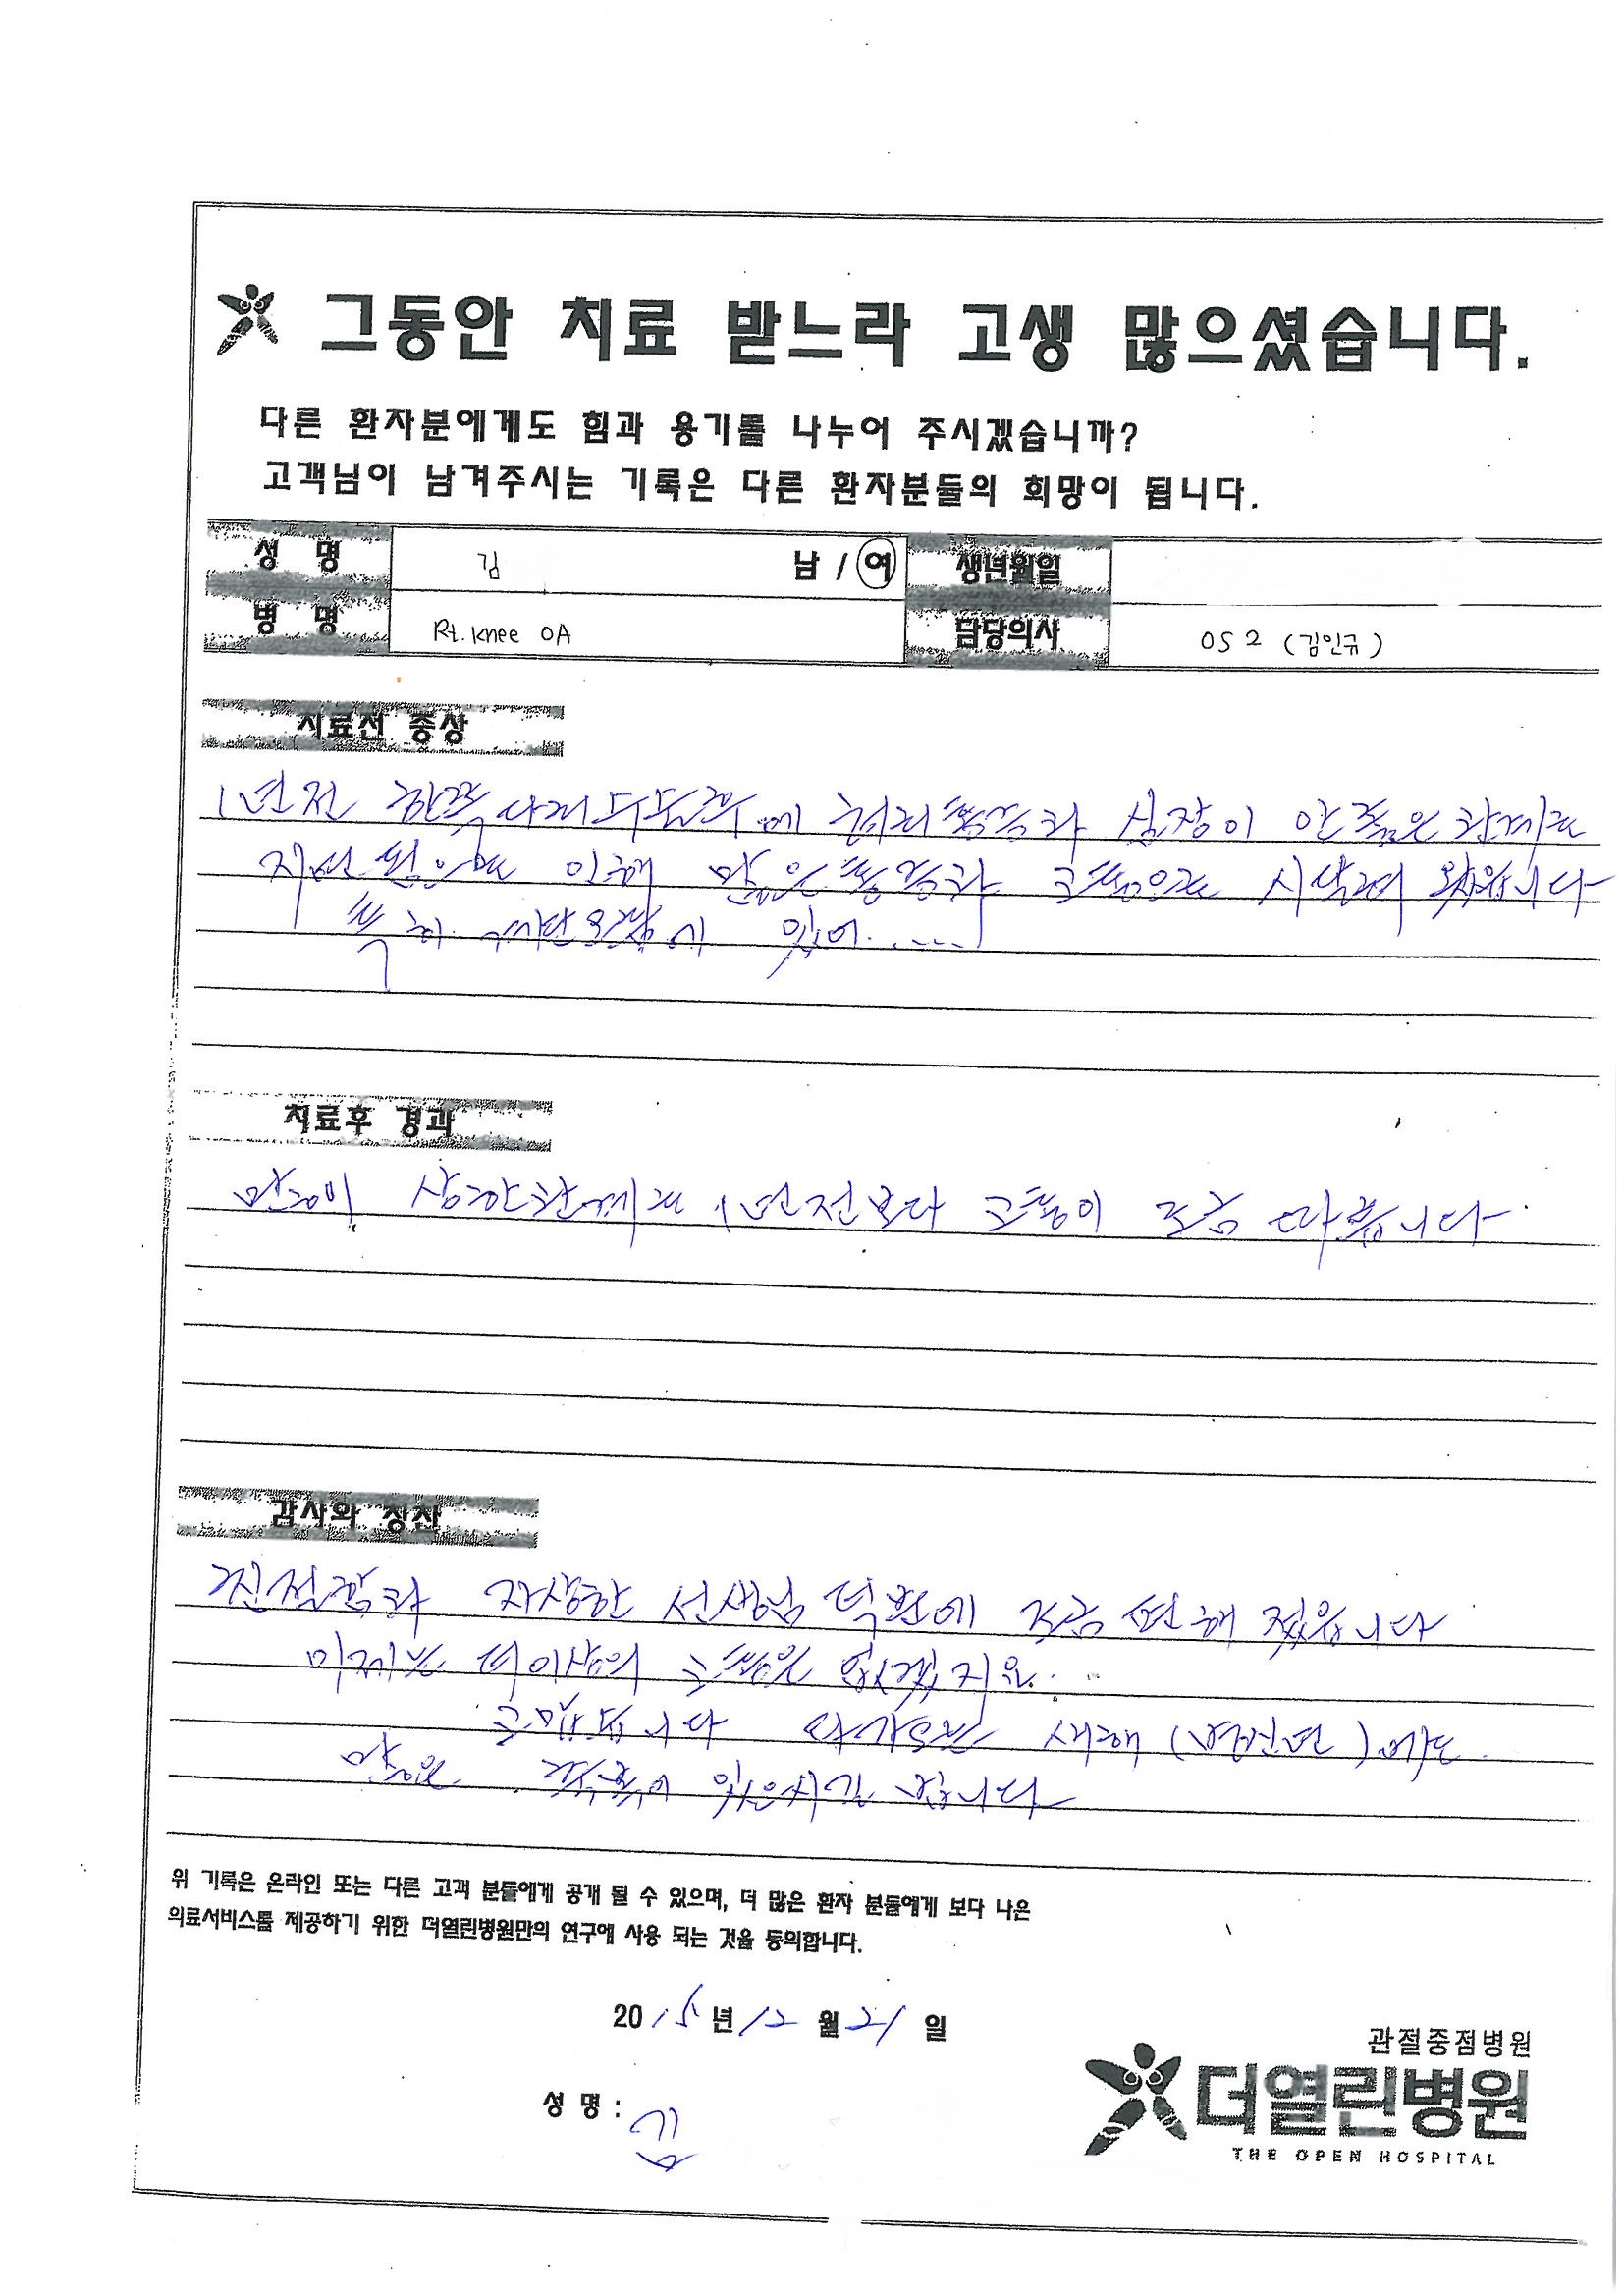 그동안 치료 받느라 고생 많으셨습니다.
다른 환자분에게도 힘과 용기를 나누어 주시겠습니까?
고객님이 남겨주시는 기록은 다른 환자분들의 희망이 됩니다.
성 명 김 남 / 여 생년월일
병 명 Rt. knee OA 담당의사 OS 2 (김인규)
치료전 증상
1년전 한쪽다리 수술후에 허리통증과 심장이 안좋은 관계로
지연됨으로 인해 많은 통증과 고통으로 시달려 왔읍니다
특히 계단오람에 있어.....
치료후 경과
많이 상한관계로 1년전보다 고통이 조금 다릅니다
감사와 칭찬
친절함과 자상한 선생님 덕분에 조금 편해 졌읍니다
이제는 더이상의 고통은 없겠지요.
고맙습니다 다가오는 새해 (병신년)에도
많은 축복이 있으시길 빕니다
위 기록은 온라인 또는 다른 고객 분들에게 공개 될 수 있으며, 더 많은 환자 분들에게 보다 나은
의료서비스를 제공하기 위한 더열린병원만의 연구에 사용 되는 것을 동의합니다.
2015년 12월 21일
성 명 : 김
관절중점병원
더열린병원
THE OPEN HOSPITAL